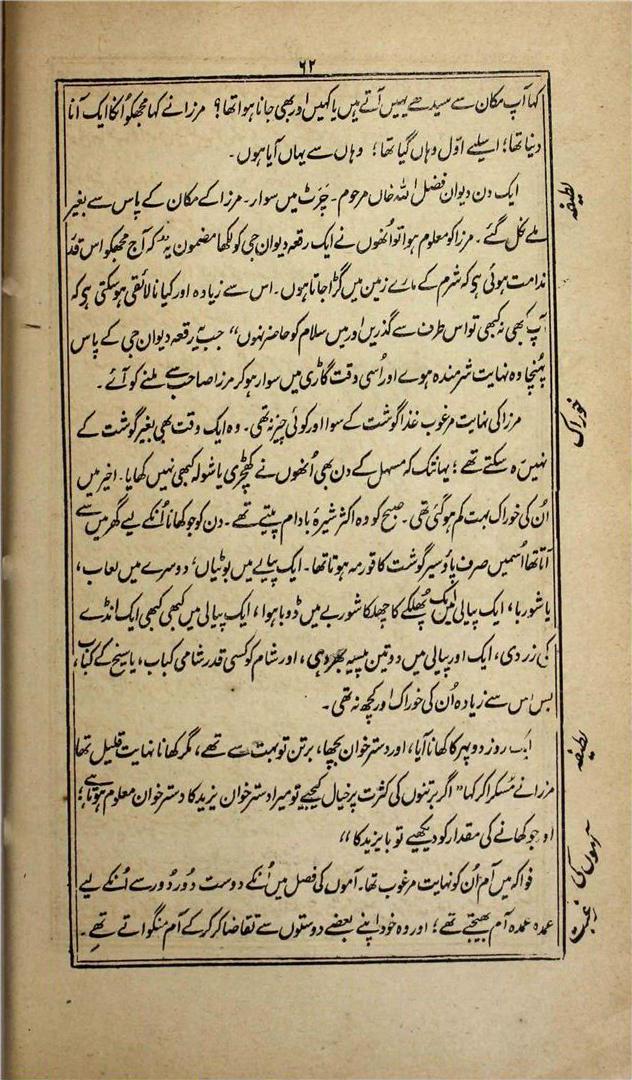 ۶۲
کہا آپ مکان سے سیدھے یہیں آتے ہیں یا کہیں اور بھی جانا ہوا تھا؟ مرزا نے کہا مجھکو اُنکا ایک آنا
دینا تھا؛ اسلیے اوّل وہاں گیا تھا؛ وہاں سے یہاں آیا ہوں۔
لطیفہ
ایک دن دیوان فضل اللہ خاں مرحوم۔ چَرٹ میں سوار۔ مرزا کے مکان کے پاس سے بغیر
ملے نکل گئے۔ مرزا کو معلوم ہوا تو اُنھوں نے ایک رقعہ دیوان جی کو لکھا مضمون یہ کہ آج مجھکو اس قدر
ندامت ہوئی ہی کہ شرم کے مارے زمین میں گڑا جاتا ہوں۔ اس سے زیادہ اور کیا نالائقی ہوسکتی ہی کہ
آپ کبھی نہ کبھی تو اس طرف سے گذریں اور میں سلام کو حاضر نہوں“ جب یہ رقعہ دیوان جی کے پاس
پہنچا وہ نہایت شرمندہ ہوے اور اُسی وقت گاڑی میں سوار ہو کر مرزا صاحب سے ملنے کو آئے۔
خوراک
مرزا کی نہایت مرغوب غذا گوشت کے سوا اور کوئی چیز نہ تھی۔ وہ ایک وقت بھی بغیر گوشت کے
نہیں رہ سکتے تھے؛ یہانتک کہ مسہل کے دن بھی اُنھوں نے کھچڑی یا شولہ کبھی نہیں کھایا۔ اخیر میں
اُن کی خوراک بہت کم ہوگئی تھی۔ صبح کو وہ اکثر شیرۂ بادام پیتے تھے۔ دن کو جو کھانا اُنکے لیے گھر میں سے
آتا تھا اُسمیں صرف پاؤ سیر گوشت کا قورمہ ہوتا تھا۔ ایک پیالے میں بوٹیاں، دوسرے میں لعاب،
یا شوربا، ایک پیالی میں ایک پھلکے کا چھلکا شوربے میں ڈوبا ہوا، ایک پیالی میں کبھی کبھی ایک انڈے
کی زردی، ایک اور پیالی میں دو تین پیسہ بھر دہی، اور شام کو کسی قدر شامی کباب، یا سیخ کے کباب
بس اس سے زیادہ اُن کی خوراک اور کچھ نہ تھی۔
لطیفہ
ایک روز دوپہر کا کھانا آیا، اور دسترخوان بچھا، برتن تو بہت سے تھے، مگر کھانا نہایت قلیل تھا
مرزا نے مسکرا کر کہا ”اگر برتنوں کی کثرت پر خیال کیجیے تو میرا دسترخوان یزید کا دسترخوان معلوم ہوتا ہے؛
اور جو کھانے کی مقدار کو دیکھیے تو بایزید کا“
آموں کی رغبت
فواکہ میں آم اُن کو نہایت مرغوب تھا۔ آموں کی فصل میں اُنکے دوست دُور دُور سے اُنکے لیے
عمدہ عمدہ آم بھیجتے تھے؛ اور وہ خود اپنے بعضے دوستوں سے تقاضا کر کر کے آم منگواتے تھے۔